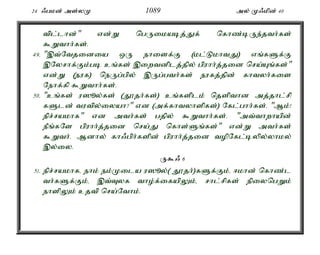 24 ஃபமன் அள்லமு 1089 அல் மூஃமின் 40
விட்டான்" என்று பெருமையடித்துக் கொண்டிருந்தவர்கள்
கூறுவார்கள்.
49. "இவ்வேதனையை ஒரு நாளைக்கு (மட்டுமாவது) எங்களுக்கு
இலேசாக்கும்படி உங்கள் இறைவனிடத்தில் பிரார்த்தனை செய்யுங்கள்"
என்று (நரக) நெருப்பில் இருப்பவர்கள் நரகத்தின் காவலர்களை
நோக்கி கூறுவார்கள்.
50. "உங்கள் ரஸூல்கள் (தூதர்கள்) உங்களிடம் தெளிவான அத்தாட்சி
களுடன் வரவில்லையா?" என (அக்காவலாளிகள்) கேட்பார்கள். "ஆம்!
நிச்சயமாக" என அவர்கள் பதில் கூறுவார்கள். "அவ்வாறாயின்
நீங்களே பிரார்த்தனை செய்து கொள்ளுங்கள்" என்று அவர்கள்
கூறுவர். ஆனால் காஃபிர்களின் பிரார்த்தனை வழிகேட்டிலில்லாமல்
இல்லை.
ருகூஃ 6
51. நிச்சயமாக, நாம் நம்முடைய ரஸூல்(தூதர்)களுக்கும், ஈமான் கொண்ட
வர்களுக்கும், இவ்வுலக வாழ்க்கையிலும், சாட்சிகள் நிலைபெறும்
நாளிலும் உதவி செய்வோம்.